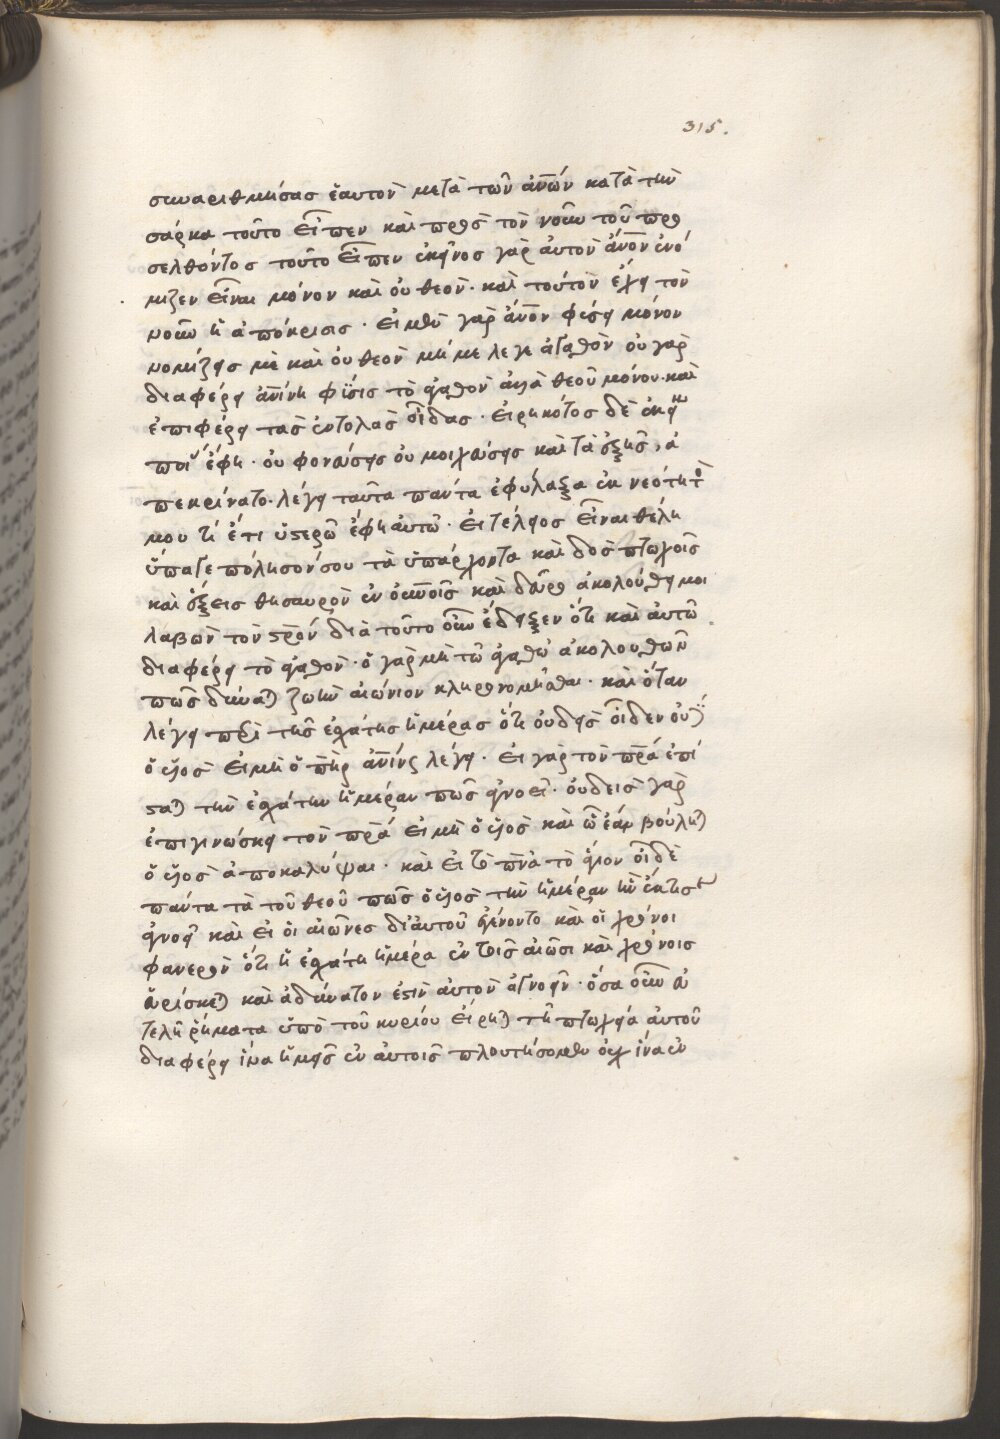 315.
συναριθμήσας ἑαυτὸν μετὰ τῶν ἀνῶν κατὰ τὴν
σάρκα τοῦτο εἶπεν καὶ πρὸς τὸν νοῦν τοῦ προ
σελθόντος τοῦτο εἶπεν ἐκεῖνος γὰρ αὐτὸν ἄνον ἐνό
μιζεν εἶναι μόνον καὶ οὐ θεὸν· καὶ τοῦτον ἔχει τὸν
νοῦν ἡ ἀπόκρισις · εἰ μὲν γὰρ ἄνον φησι μόνον
νομίζεις με καὶ οὐ θεὸν μή με λεγε ἀγαθὸν οὐ γὰρ
διαφέρει ἀνίνη φύσις τὸ ἀγαθὸν ἀλλὰ θεοῦ μόνου· καὶ
ἐπιφέρει τὰς ἐντολὰς οἶδας · εἰρηκότος δὲ ἐκείνου
ποί ἔφη · οὐ φονεύσεις οὐ μοιχεύσεις καὶ τὰ ἑξῆς, ἀ
πεκρίνατο· λέγει ταῦτα παντα ἐφύλαξα ἐκ νεότητός
μου τί ἔτι ὑστερῶ ἔφη αὐτῶ · εἰ τέλειος εἶναι θέλη
ὕπαγε πόλησόν σου τὰ ὑπάρχοντα καὶ δὸς πτωχοῖς
καὶ ἕξεις θησαυρὸν ἐν οὐνοῖς καὶ δεῦρο ἀκολούθει μοι
λαβὼν τὸν στρόν διὰ τοῦτο οὖν ἔδειξεν ὅτι καὶ αὐτῶ
διαφέρει τὸ ἀγαθὸν · ὁ γὰρ μὴ τῶ ἀγαθῶ ἀκολουθῶν
πῶς δύναται ζωὴν αἰώνιον κληρονομῆσαι · καὶ ὅταν
λέγει περὶ τῆς ἐσχάτης ἡμέρας ὅτι οὐδεὶς οἶδεν οὔτε
ὁ υἱὸς εἰ μὴ ὁ πηρ ἀνίνως λέγει · εἰ γὰρ τὸν πρα ἐπί
σταται τὴν ἐσχάτην ἡμέραν πῶς ἀγνοεῖ · οὐδεις γὰρ
ἐπιγινώσκει τὸν πρα εἰ μὴ ὁ υἱὸς καὶ ὧ ἐὰν βούληται
ὁ υἱὸς ἀποκαλύψαι · καὶ εἰ τὸ πνα τὸ ἅγιον οἶδε
παντα τὰ τοῦ θεοῦ πῶς ὁ υἱὸς τὴν ἡμέραν τὴν ἐσχάτην
ἀγνοεῖ καὶ εἰ οἱ αἰῶνες δι αὐτοῦ ἐγένοντο καὶ οἱ χρόνοι
φανερὸν ὅτι ἡ ἐσχάτη ἡμέρα ἐν τοῖς αἰῶσι καὶ χρόνοις
εὑρίσκεται καὶ ἀδύνατον ἐστὶν αὐτὸν ἀγνοεῖν · ὅσα οὖν εὐ
τελῆ ῥήματα ὑπὸ τοῦ κυρίου εἴρηται τῆ πτωχεία αὐτοῦ
διαφέρει ἵνα ἡμεῖς ἐν αὐτοῖς πλουτήσομεν οὐχ ἵνα ἐν